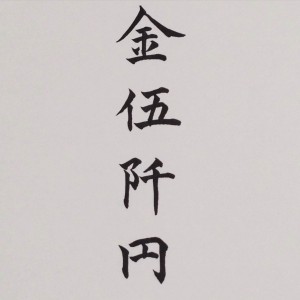 金伍阡円